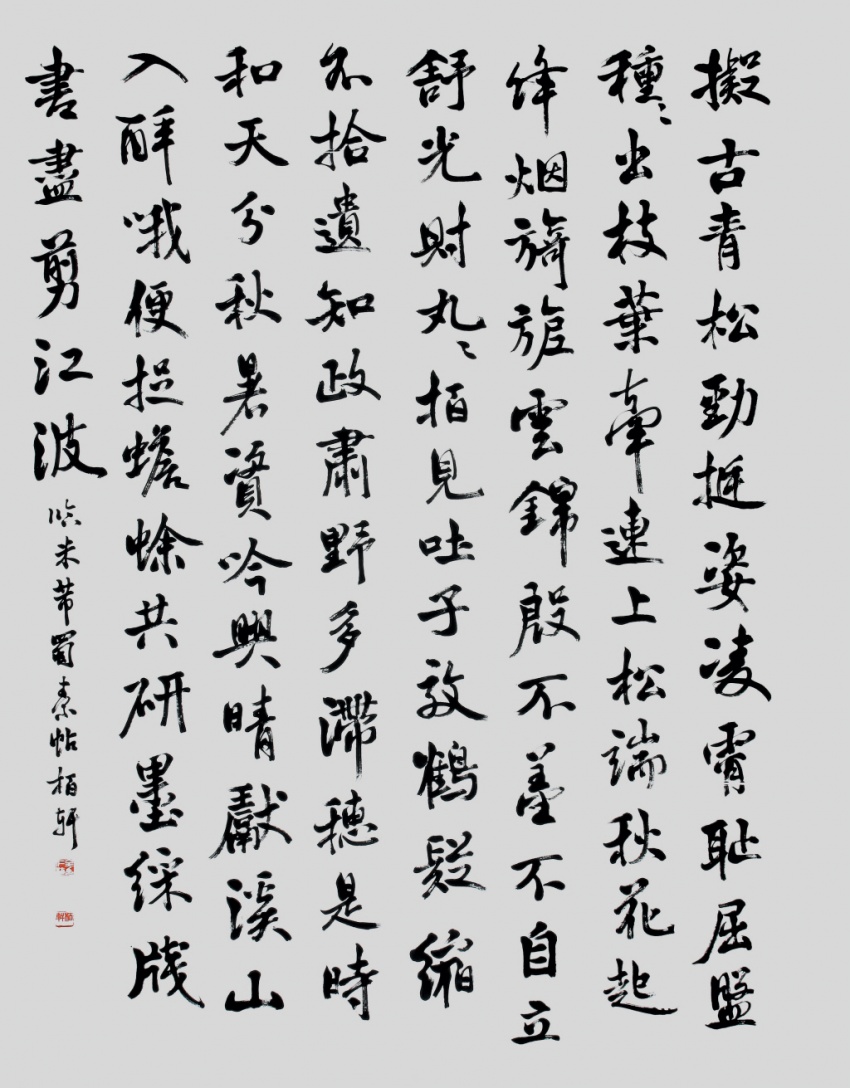 擬古青松勁挺姿凌霄耻屈盤
種〻出枝葉牽連上松端秋花起
絳烟旖旎雲錦殷不羞不自立
舒光射丸〻栢見吐子效鶴髮縮
不拾遺知政肅野多滯穗是時
和天分秋暑資吟興晴獻溪山
入醉哦便捉蟾蜍共研墨綵牋
書盡剪江波
臨米芾蜀素帖栢軒